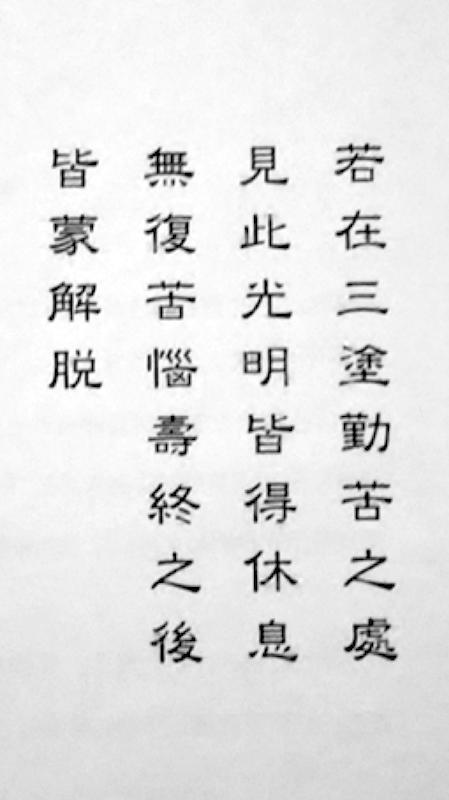 若在三塗勤苦之處
見此光明皆得休息
無復苦惱壽終之後
皆蒙解脱